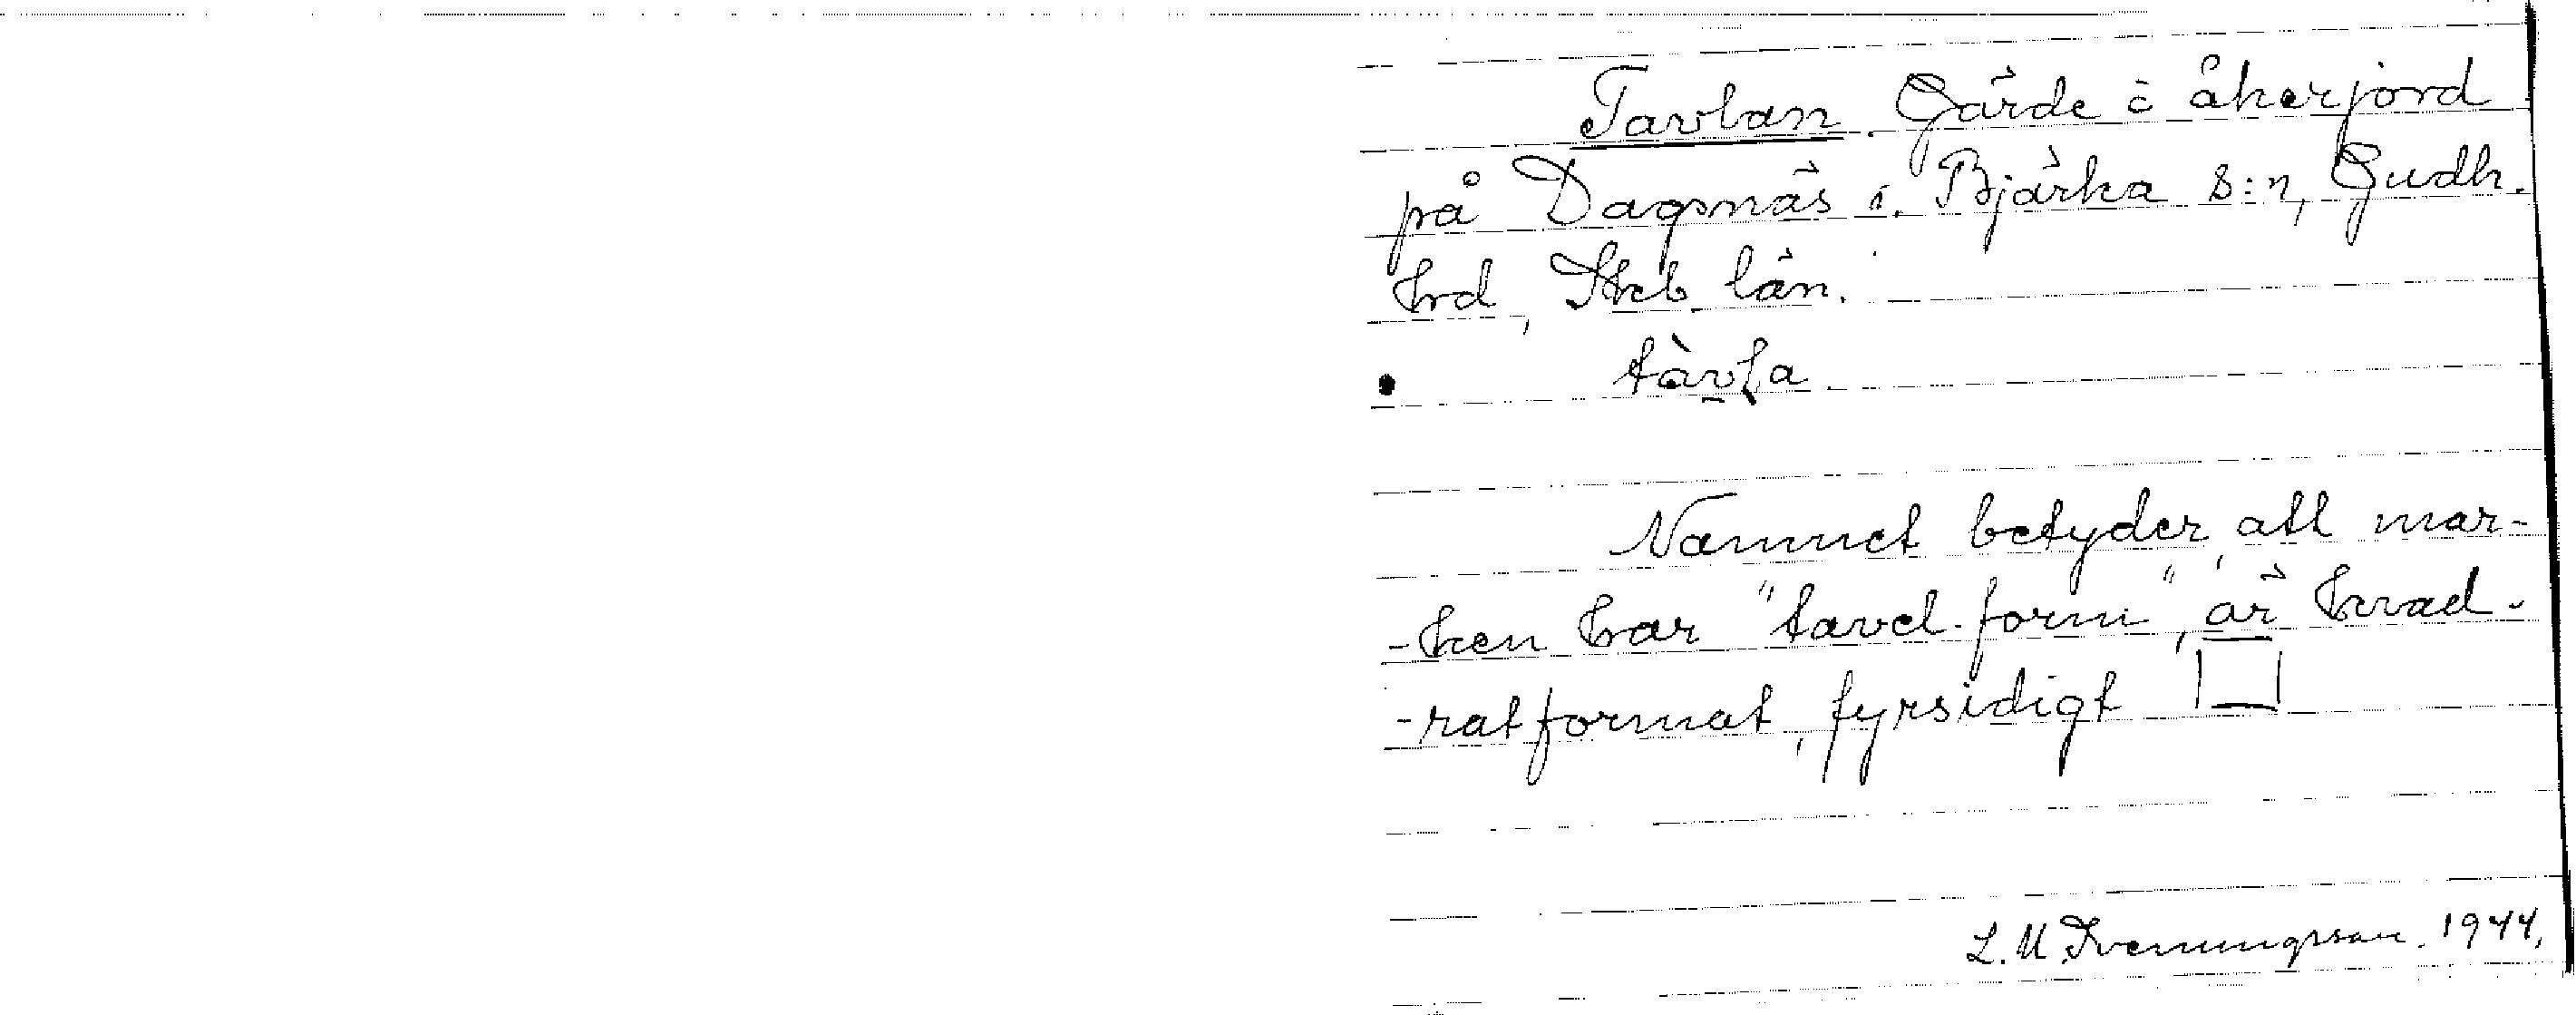 Tavlan. Gärde å åkerjord
på Dagsnäs i. Bjärka s:n, Gudh.
hrd, Skb. län.
tàvla
Namnet betyder, att mar-
-ken har "tavel-form", är kvad-
-ratformat, fyrsidigt
L. M Svenungsson. 1944.